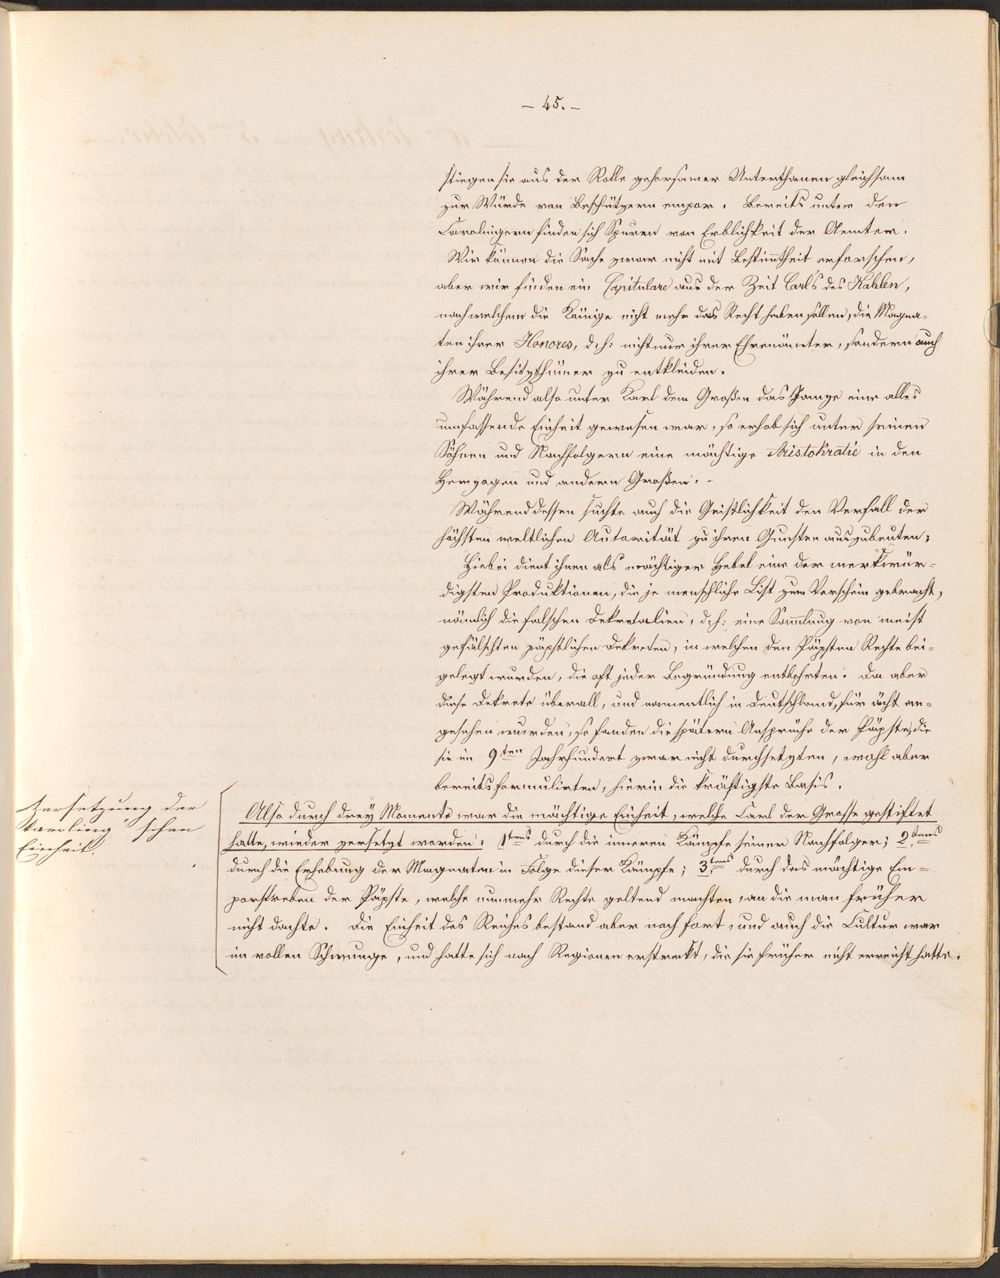 – 45. –
stiegen sie aus der Rolle gehorsamer Unterthanen gleichsam
zur Würde von Beschützern empor. Bereits unter den
Carolingern finden sich Spuren von Erblichkeit der Aemter.
Wir können die Sache zwar nicht mit Bestimmtheit erforschen,
aber wir finden ein Capitulare aus der Zeit Carl's des Kahlen,
nach welchem die Könige nicht mehr das Recht haben sollen, die Magna-
ten ihrer Honores, d. h: nicht nur ihrer Ehrenämter, sondern auch
ihrer Besitzthümer zu entkleiden.
Während also unter Karl dem Großen das Ganze eine alles
umfassende Einheit gewesen war, so erhob sich unter seinen
Söhnen und Nachfolgern eine mächtige Aristokratie in den
Herzogen und andern Großen. -
Während dessen suchte auch die Geistlichkeit den Verfall der
höchsten weltlichen Autorität zu ihren Gunsten auszubeuten;
Hiebei dient ihnen als mächtiger Hebel eine der merkwür-
digsten Produktionen, die je menschliche List zum Vorschein gebracht,
nämlich die falschen Dekretalien, d. h: eine Sammlung von meist
gefälschten päpstlichen Dekreten, in welchen den Päpsten Rechte bei-
gelegt wurden, die oft jeder Begründung entbehrten. Da aber
diese Dekrete überall, und namentlich in Deutschland, für ächt an-
gesehen wurden, so fanden die spätern Ansprüche der Päpste, die
sie im 9ten Jahrhundert zwar nicht durchsetzten, wohl aber
bereits formulirten, hierin die kräftigste Basis.
Zersetzung der
karoling'schen
Einheit.
Also durch drey Momente war die mächtige Einheit, welche Carl der Grosse gestiftet
hatte, wieder zersetzt worden: 1tens durch die inneren Kämpfe seiner Nachfolger; 2tens
durch die Erhebung der Magnaten in Folge dieser Kämpfe; 3tens durch das mächtige Em-
porstreben der Päpste, welche nunmehr Rechte geltend machten, an die man früher
nicht dachte. Die Einheit des Reiches bestand aber noch fort, und auch die Cultur war
im vollen Schwunge, und hatte sich nach Regionen erstreckt, die sie früher nicht erreicht hatte.